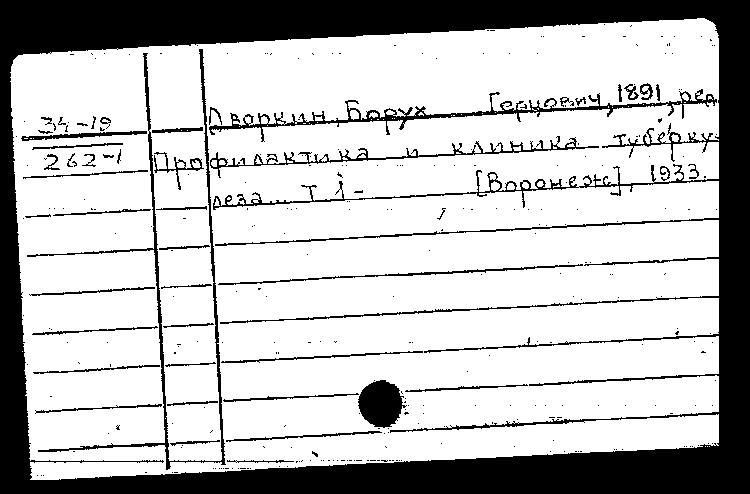 34-19
262-1
Дворкин, Борух Герцович, 1891, ред
Профилактика и клиника туберку-
леза... Т 1- [Воронеж], 1933.